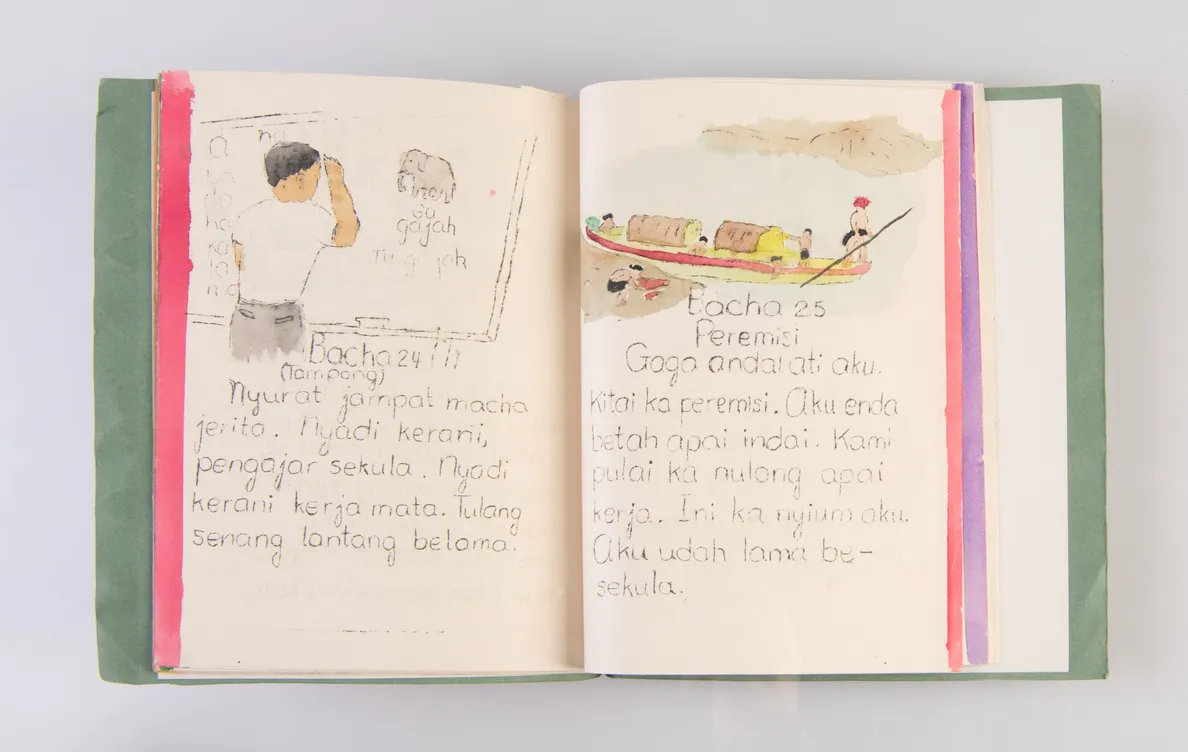 a
na
ga
gajah
ha
Bacha 24
(Tampong)
Nyurat jampat macha
jerita. Nyadi kerani,
pengajar sekula. Nyadi
kerani kerja mata. Tulang
senang lantang belama.
Bacha 25
Peremisi
Gaga andai ati aku.
Kitai ka peremisi. Aku enda
betah apai indai. Kami
pulai ka nulong apai
kerja. Ini ka nyium aku.
Aku udah lama be-
sekula.